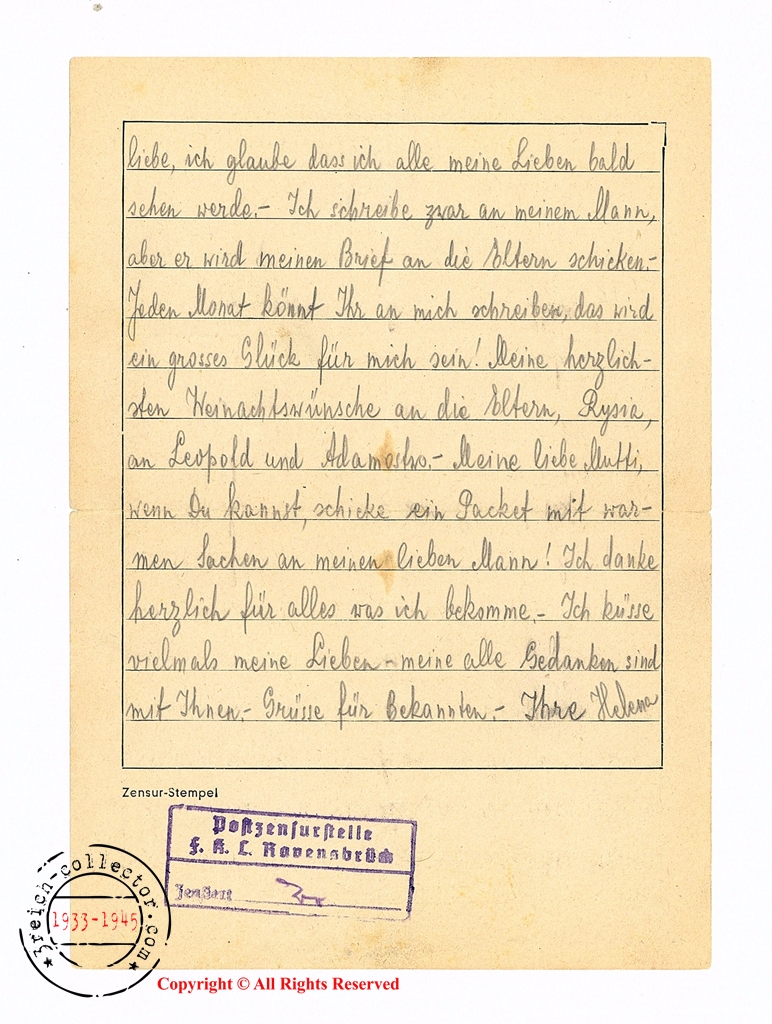 liebe, ich glaube dass ich alle meine Lieben bald
sehen werde.- Ich schreibe zwar an meinem Mann,
aber er wird meinen Brief an die Eltern schicken.-
Jeden Monat könnt Ihr an mich schreiben, das wird
ein grosses Glück für mich sein! Meine herzlich-
sten Weinachtswünsche an die Eltern, Rysia,
an Leopold und Adamostwo.- Meine liebe Mutti,
wenn Du kannst, schicke ein Packet mit war-
men Sachen an meinen lieben Mann! Ich danke
herzlich für alles was ich bekomme.- Ich küsse
vielmals meine Lieben - meine alle Gedanken sind
mit Ihnen.- Grüsse für Bekannten.- Ihre Helena
Zensur-Stempel
Postzensurstelle
F. K. L. Ravensbrück
Zensiert
3reich-collector.com
1933-1945
Copyright © All Rights Reserved